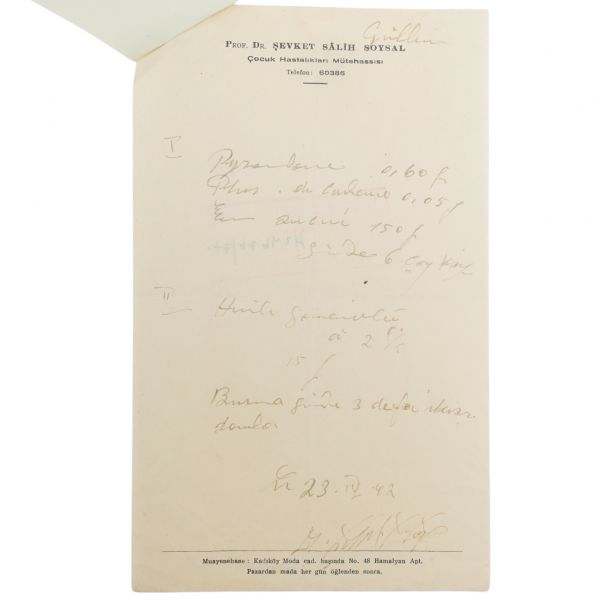 Güllün
PROF. DR. ŞEVKET SÂLİH SOYSAL
Çocuk Hastalıkları Mütehassısı
Telefon: 60386
I
0,60 g
Phos. de codeine 0,05 g
150 g
günde 6 çay kaşığı
II
Huile goménolée
à 2 %
15 g
Buruna günde 3 defa ikişer
damla.
23. IV 42
Muayenehane: Kadıköy Moda cad. başında No. 48 Hamalyan Apt.
Pazardan mada her gün öğlenden sonra.